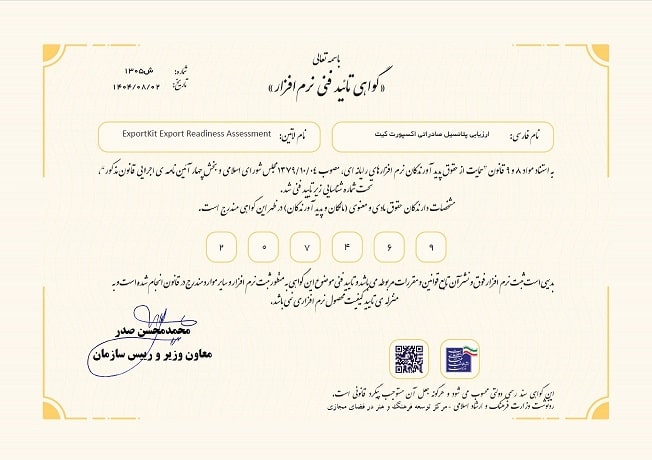 باسمه تعالی
«گواهی تائید فنی نرم افزار»
شماره: ش۱۳۰۵
تاریخ: ۱۴۰۴/۰۸/۰۲
نام فارسی: ارزیابی پتانسیل صادراتی اکسپورت کیت
نام لاتین: ExportKit Export Readiness Assessment
به استناد مواد ۸ و ۹ قانون "حمایت از حقوق پدید آورندگان نرم افزارهای رایانه ای، مصوب ۱۳۷۹/۱۰/۰۴ مجلس شورای اسلامی و بخش چهار آئین نامه ی اجرایی قانون مذکور"،
تحت شماره شناسایی زیر تایید فنی شد.
مشخصات دارندگان حقوق مادی و معنوی (مالکان و پدید آورندگان) در ظهر این گواهی مندرج است.
۲ ۰ ۷ ۴ ۶ ۹
بدیهی است ثبت نرم افزار فوق و نشر آن تابع قوانین و مقررات مربوطه می باشد و تایید فنی موضوع این گواهی به منظور ثبت نرم افزار و سایر موارد مندرج در قانون انجام شده است و به
منزله ی تایید کیفیت محصول نرم افزاری نمی باشد.
محمدمحسن صدر
معاون وزیر و رییس سازمان
این گواهی سند رسمی دولتی محسوب می شود و هرگونه جعل آن مستوجب پیگرد قانونی است.
رونوشت وزارت فرهنگ و ارشاد اسلامی - مرکز توسعه فرهنگ و هنر در فضای مجازی